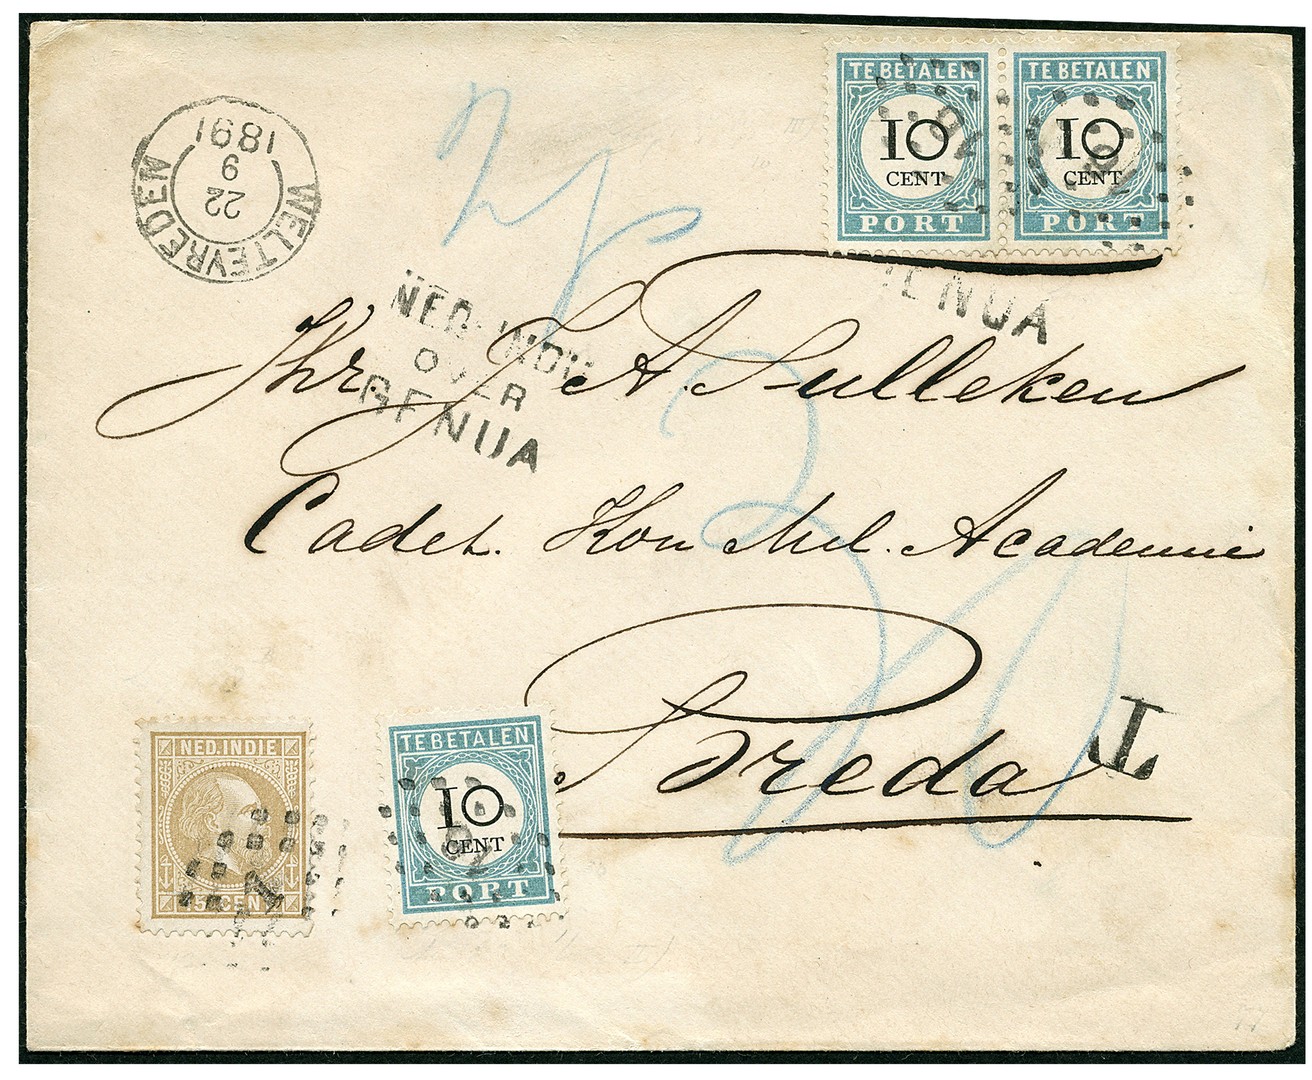 WELTEVREDEN
22
9
1891
TE BETALEN
10
CENT
PORT
TE BETALEN
10
CENT
PORT
NED-INDIE
OVER
GENUA
GENUA
Jhr. J. A. Sulleken
Cadet. Kon Mil. Academie
Breda
T
30
NED. INDIE
15 CENT
TE BETALEN
10
CENT
PORT